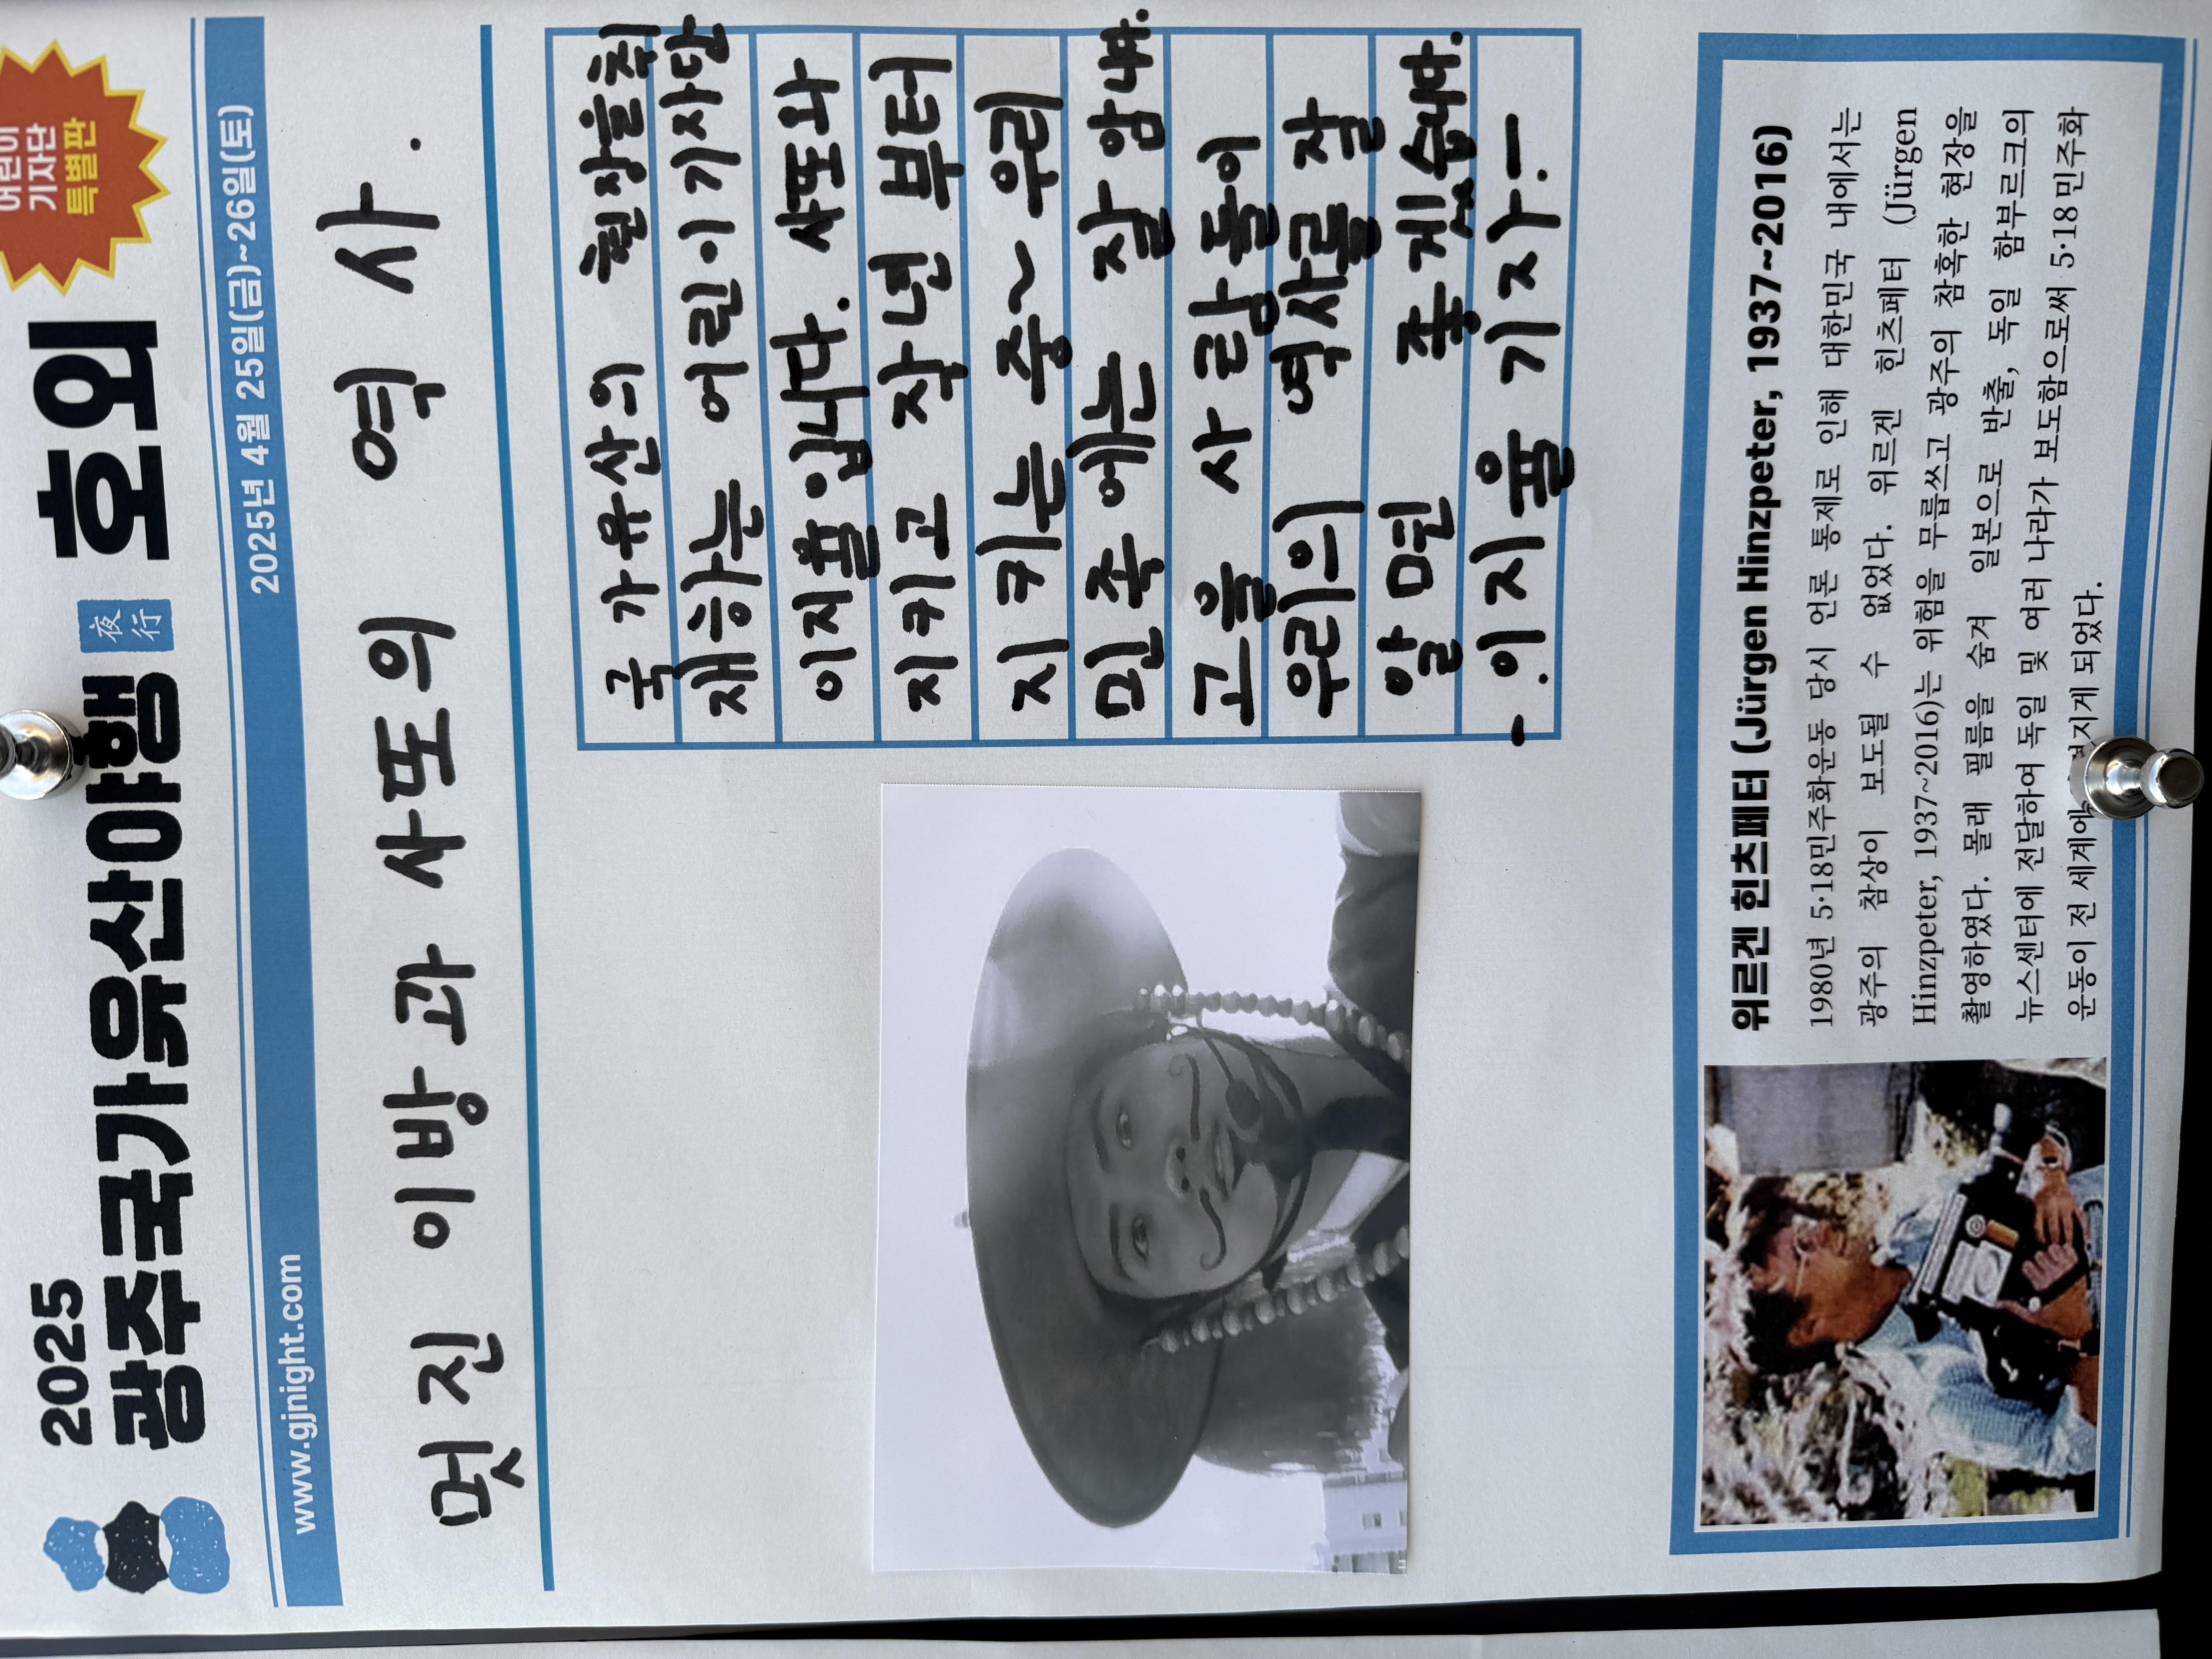 2025
광주국가유산야행 夜行 호외
어린이
기자단
특별판
www.gjnight.com 2025년 4월 25일(금)~26일(토)
멋진 이방과 사또의 역사.
국가유산의 현장을 취
재하는 어린이 기자단
이지율입니다. 사또와
지키고 작년 부터
지키는 중~ 우리
민족에는 잘 압니다.
고을 사람들이
우리의 역사를 잘
알면 좋겠습니다.
-.이지율 기자.-
위르겐 힌츠페터 (Jürgen Hinzpeter, 1937~2016)
1980년 5·18민주화운동 당시 언론 통제로 인해 대한민국 내에서는
광주의 참상이 보도될 수 없었다. 위르겐 힌츠페터 (Jürgen
Hinzpeter, 1937~2016)는 위험을 무릅쓰고 광주의 참혹한 현장을
촬영하였다. 몰래 필름을 숨겨 일본으로 반출, 독일 함부르크의
뉴스센터에 전달하여 독일 및 여러 나라가 보도함으로써 5·18민주화
운동이 전 세계에 되었다.